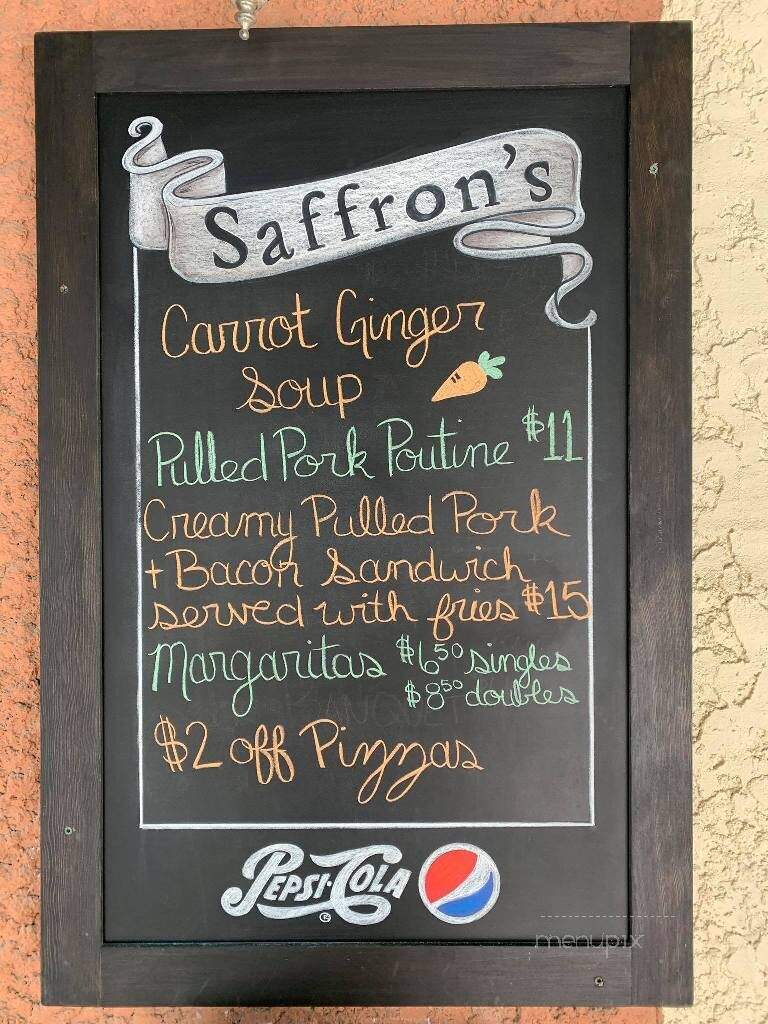 Saffron's
Carrot Ginger
Soup
Pulled Pork Poutine $11
Creamy Pulled Pork
+ Bacon Sandwich
served with fries $15
Margaritas $6.50 singles
$8.50 doubles
$2 off Pizzas
PEPSI-COLA
menupix